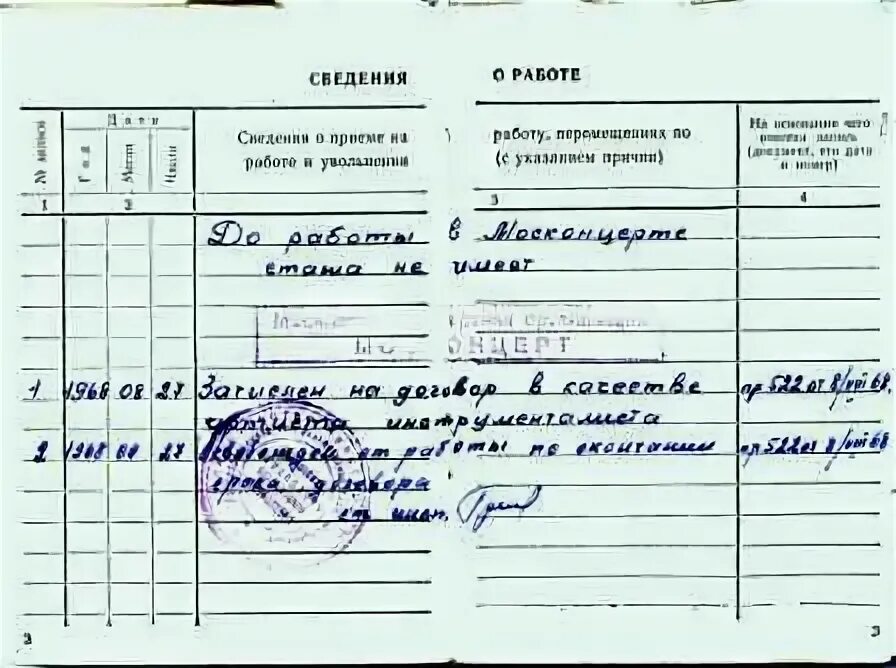 СВЕДЕНИЯ О РАБОТЕ
№ записи
Дата
Год
Месяц
Число
Сведения о приеме на работу, перемещениях по
работе и увольнении (с указанием причин)
На основании чего
внесена запись
(документ, его дата
и номер)
1 2 3 4
До работы в Москонцерте
стажа не имеет
КОНЦЕРТ
1 1968 08 27 Зачислен на договор в качестве пр 522 от 8/VIII 68.
артиста инструменталиста
2 1968 27 от работы по окончании пр 522 от 8/VIII 68
срока договора
ст. инсп.
2 3